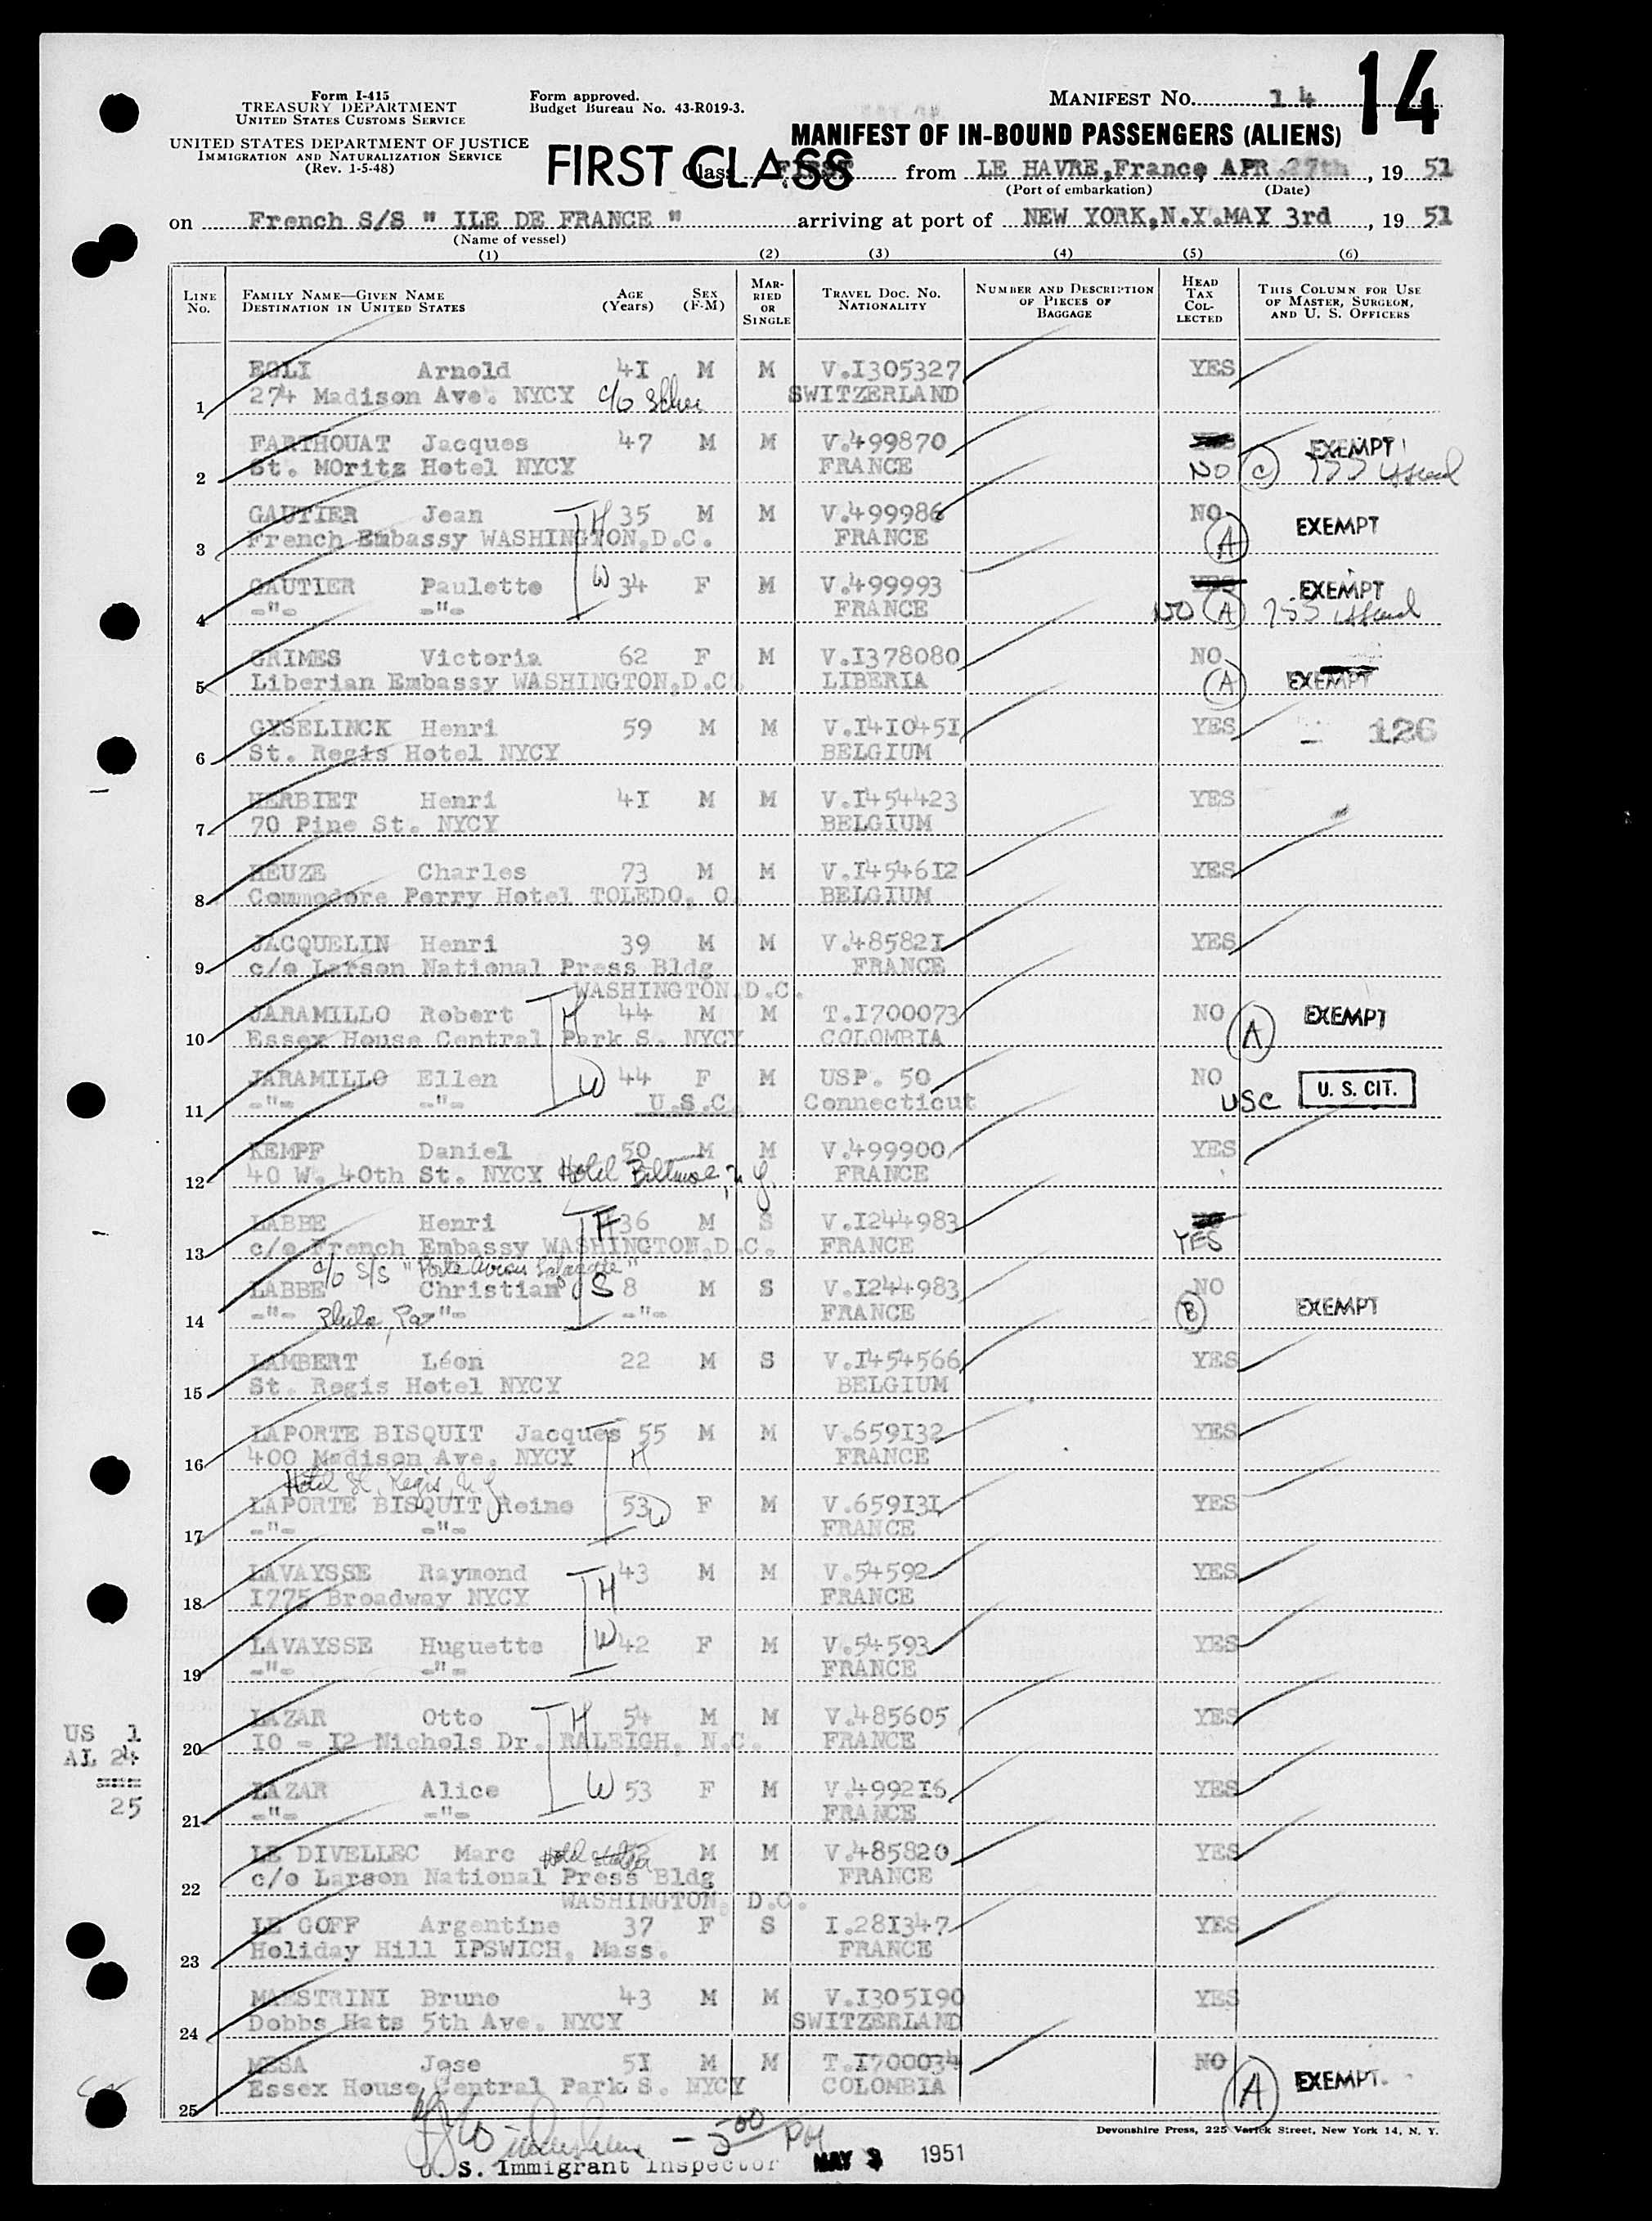 14
Form I-415
TREASURY DEPARTMENT
UNITED STATES CUSTOMS SERVICE
UNITED STATES DEPARTMENT OF JUSTICE
IMMIGRATION AND NATURALIZATION SERVICE
(Rev. 1-5-48)
Form approved.
Budget Bureau No. 43-R019-3.
MANIFEST NO. 14
MANIFEST OF IN-BOUND PASSENGERS (ALIENS)
FIRST CLASS
Class FIRST from LE HAVRE,France, APR 27th, 19 51
(Port of embarkation) (Date)
on French S/S " ILE DE FRANCE " arriving at port of NEW YORK,N.Y.MAY 3rd, 19 51
(Name of vessel)
(1) (2) (3) (4) (5) (6)
LINE NO. FAMILY NAME—GIVEN NAME DESTINATION IN UNITED STATES AGE (Years) SEX (F-M) MARRIED OR SINGLE TRAVEL DOC. NO. NATIONALITY NUMBER AND DESCRIPTION OF PIECES OF BAGGAGE HEAD TAX COLLECTED THIS COLUMN FOR USE OF MASTER, SURGEON, AND U. S. OFFICERS
EGLI Arnold 4I M M V.I305327 YES
1 274 Madison Ave. NYCY c/o SWITZERLAND
FARTHOUAT Jacques 47 M M V.499870 EXEMPT
2 St. MOritz Hotel NYCY FRANCE NO C
GAUTIER Jean H 35 M M V.499986 NO EXEMPT
3 French Embassy WASHINGTON,D.C. FRANCE A
GAUTIER Paulette W 34 F M V.499993 YES EXEMPT
4 -"- -"- FRANCE NO A
GRIMES Victoria 62 F M V.I378080 NO
5 Liberian Embassy WASHINGTON,D.C. LIBERIA A EXEMPT
GYSELINCK Henri 59 M M V.I4I045I YES 126
6 St. Regis Hotel NYCY BELGIUM
HERBIET Henri 4I M M V.I454423 YES
7 70 Pine St. NYCY BELGIUM
HEUZE Charles 73 M M V.I4546I2 YES
8 Commodore Perry Hotel TOLEDO, O. BELGIUM
JACQUELIN Henri 39 M M V.48582I YES
9 c/o Larson National Press Bldg FRANCE
WASHINGTON,D.C.
JARAMILLO Robert H 44 M M T.I700073 NO EXEMPT
10 Essex House Central Park S. NYCY COLOMBIA A
JARAMILLO Ellen W 44 F M USP. 50 NO U. S. CIT.
11 -"- -"- U.S.C. Connecticut USC
KEMPF Daniel 50 M M V.499900 YES
12 40 W. 40th St. NYCY Hotel Biltmore, N.Y. FRANCE
LABBE Henri F 36 M S V.I244983
13 c/o French Embassy WASHINGTON,D.C. FRANCE YES
c/o S/S "Porte Avion Lafayette"
LABBE Christian S 8 M S V.I244983 NO
14 -"- Phila, Pa -"- -"- FRANCE B EXEMPT
LAMBERT Léon 22 M S V.I454566 YES
15 St. Regis Hotel NYCY BELGIUM
LAPORTE BISQUIT Jacques 55 M M V.659I32 YES
16 400 Madison Ave. NYCY H FRANCE
Hotel St. Regis, N.Y.
LAPORTE BISQUIT Reine 53 W F M V.659I3I YES
17 -"- -"- FRANCE
LAVAYSSE Raymond 43 M M V.54592 YES
18 I775 Broadway NYCY H FRANCE
LAVAYSSE Huguette W 42 F M V.54593 YES
19 -"- -"- FRANCE
LAZAR Otto H 54 M M V.485605 YES
20 I0 - I2 Nichols Dr. RALEIGH, N.C. FRANCE
LAZAR Alice W 53 F M V.4992I6 YES
21 -"- -"- FRANCE
LE DIVELLEC Marc Hotel Statler M M V.485820 YES
22 c/o Larson National Press Bldg FRANCE
WASHINGTON, D.C.
LE GOFF Argentine 37 F S I.28I347 YES
23 Holiday Hill IPSWICH, Mass. FRANCE
MAESTRINI Bruno 43 M M V.I305I90 YES
24 Dobbs Hats 5th Ave. NYCY SWITZERLAND
MESA Jose 5I M M T.I700034 NO
25 Essex House Central Park S. NYCY COLOMBIA A EXEMPT
US 1
AL 24
25
Devonshire Press, 225 Varick Street, New York 14, N. Y.
- 5 00 PM
U. S. Immigrant Inspector MAY 3 1951